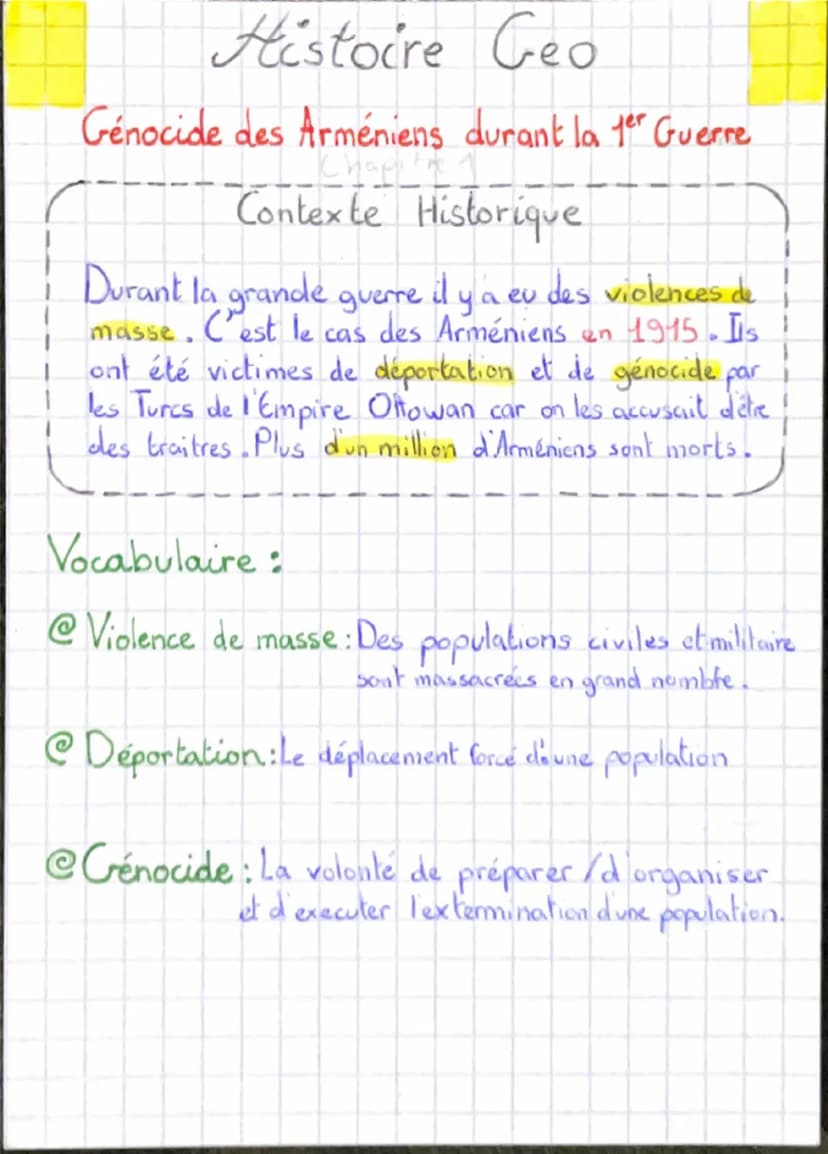 Histoire Geo
Génocide des Arméniens durant la 1er Guerre
Chapitre 1
Contexte Historique
Durant la grande guerre il y a eu des violences de
masse. C'est le cas des Arméniens en 1915. Ils
ont été victimes de déportation et de génocide par
les Turcs de l'Empire Ottowan car on les accusait d'être
des traitres. Plus d'un million d'Arméniens sont morts.
Vocabulaire :
@ Violence de masse : Des populations civiles et militaire
sont massacrées en grand nombre.
@ Déportation : Le déplacement forcé d'une population
@ Génocide : La volonté de préparer / d'organiser
et d'executer l'extermination d'une population.